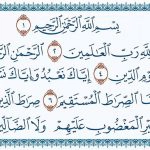 بِسْمِ اللَّهِ الرَّحْمَٰنِ الرَّحِيمِ ١
لِلَّهِ رَبِّ الْعَٰلَمِينَ ٢ الرَّحْمَٰنِ
الدِّينِ ٤ إِيَّاكَ نَعْبُدُ وَإِيَّاكَ
نَا الصِّرَٰطَ الْمُسْتَقِيمَ ٦ صِرَٰطَ
يْرِ الْمَغْضُوبِ عَلَيْهِمْ وَلَا الضَّالِّينَ